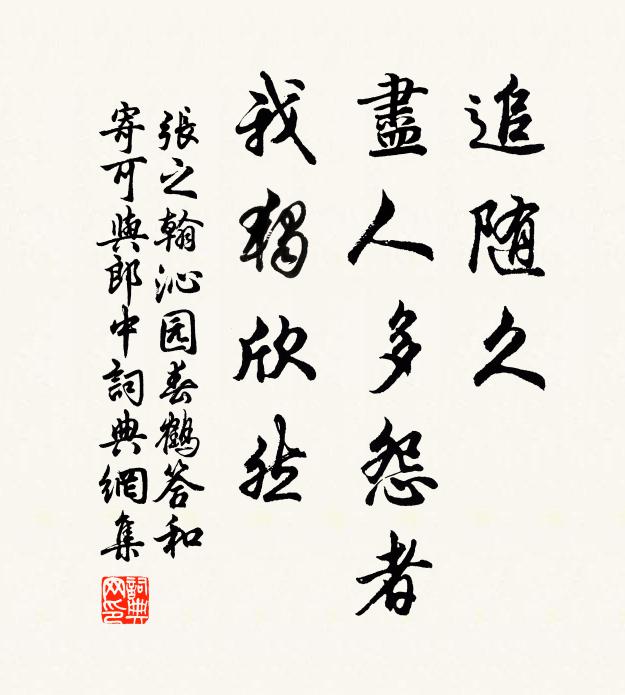 追随久
盡人多怨者
我獨欣然
張之翰沁园春鶴答和
寄可與郎中詞典網集
詞典網印